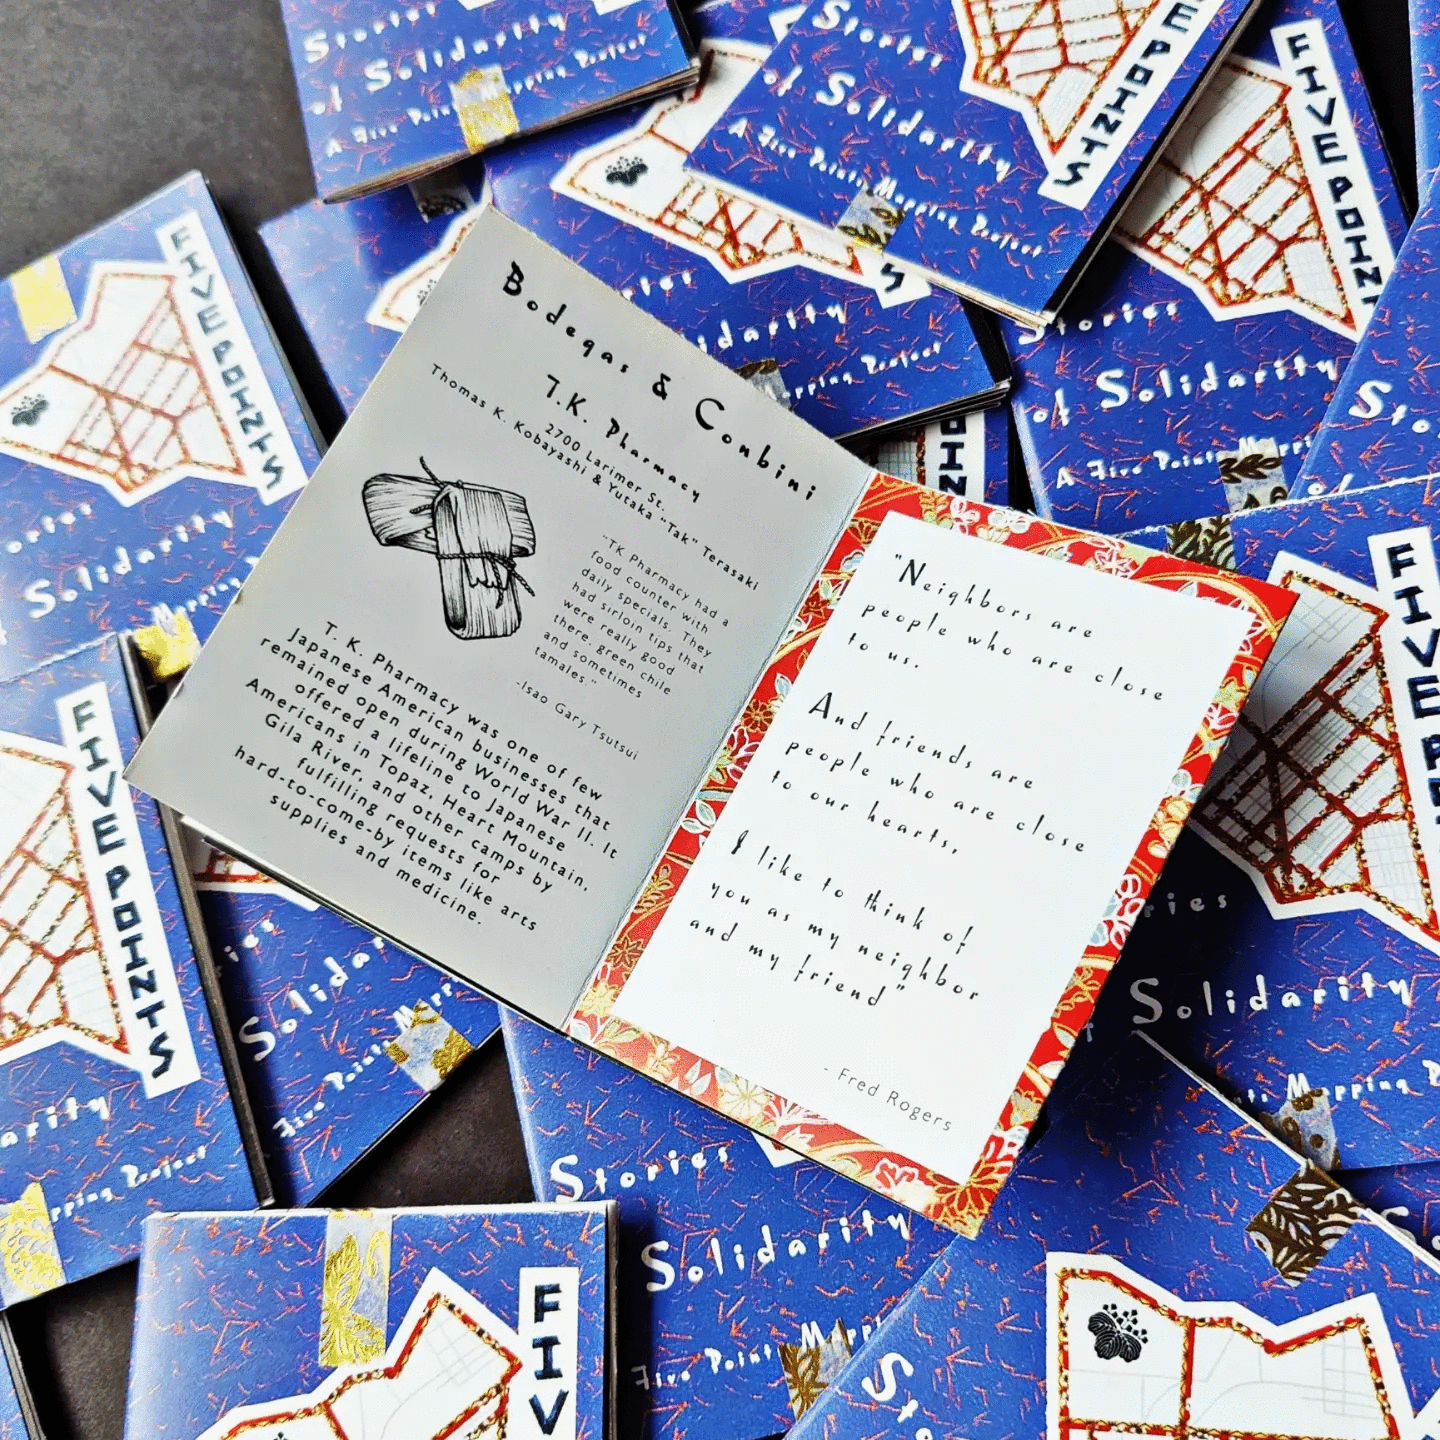 Stories
of Solidarity
A Five Points Mapping Project
FIVE POINTS
Bodegas & Conbini
T.K. Pharmacy
2700 Larimer St.
Thomas K. Kobayashi & Yutaka "Tak" Terasaki
"TK Pharmacy had a
food counter with
daily specials. They
had sirloin tips that
were really good
there, green chile
and sometimes
tamales."
-Isao Gary Tsutsui
T. K. Pharmacy was one of few
Japanese American businesses that
remained open during World War II. It
offered a lifeline to Japanese
Americans in Topaz, Heart Mountain,
Gila River, and other camps by
fulfilling requests for
hard-to-come-by items like arts
supplies and medicine.
"Neighbors are
people who are close
to us.
And friends are
people who are close
to our hearts.
I like to think of
you as my neighbor
and my friend"
- Fred Rogers